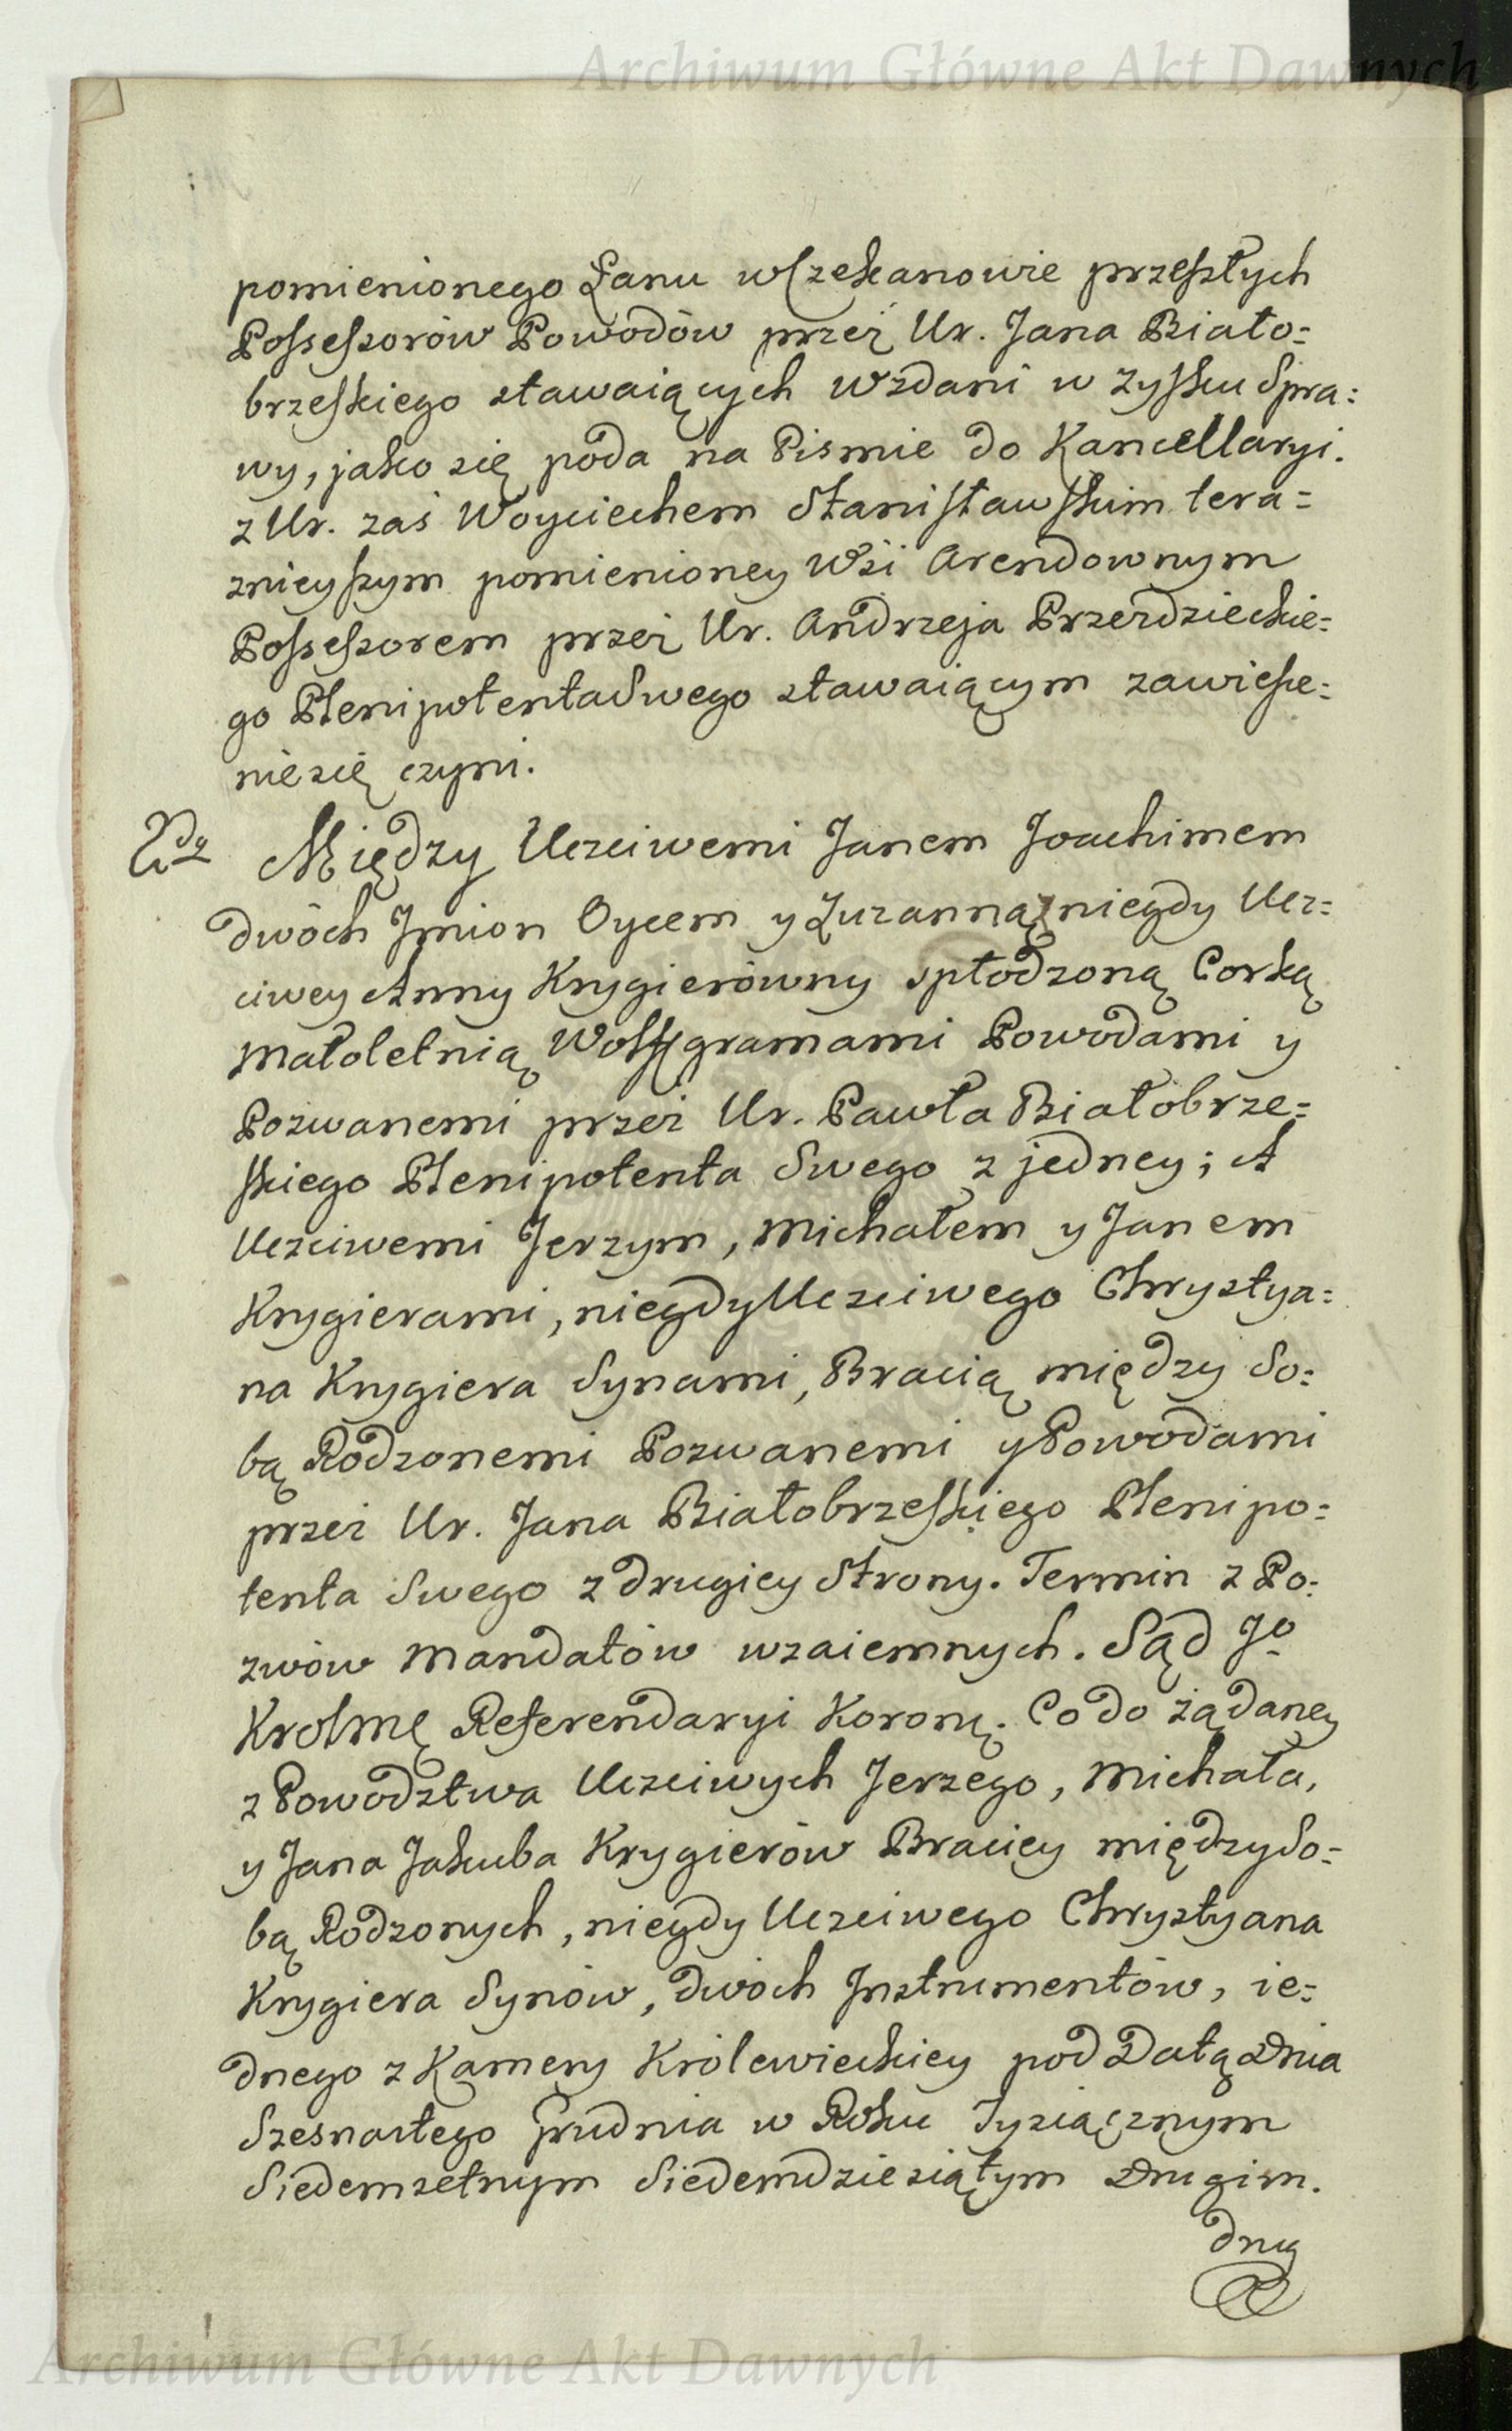 Archiwum Główne Akt Dawnych
pomienionego Łanu w Czekanowie przeszłych
Possessorów Powodów przez Ur. Jana Biało=
brzeskiego stawaiących wzdani w zysku Spra=
wy, jako się poda na Pismie do Kancellaryi.
z Ur. zaś Woyciechem Stanisławskim tera=
znieyszym pomienioney Wsi Arendownym
Possessorem przez Ur. Andrzeja Przezdzieckie=
go Plenipotenta Swego stawaiącym zawiesze=
nie się czyni.
Między Uczciwemi Janem Joachimem
dwóch Jmion Oycem y Zuzanną z niegdy Ucz=
ciwey Anny Krygierówny spłodzoną Corką
Małoletnią Wolfgramami Powodami y
Pozwanemi przez Ur. Pawła Białobrze=
skiego Plenipotenta Swego z jedney; A
Uczciwemi Jerzym, Michałem y Janem
Krygierami, niegdy Uczciwego Chrystya=
na Krygiera Synami, Bracią między So=
bą Rodzonemi Pozwanemi y Powodami
przez Ur. Jana Białobrzeskiego Plenipo=
tenta Swego z drugiey Strony. Termin z Po=
zwów Mandatów wzaiemnych. Sąd Jo
Krolmę Referendaryi Koronę. Co do żądaney
z Powodztwa Uczciwych Jerzego, Michała,
y Jana Jakuba Krygierów Braciey między So=
bą Rodzonych, niegdy Uczciwego Chrystyana
Krygiera Synów, dwóch Jnstrumentów, ie=
dnego z Kamery Królewieckiey pod Datą Dnia
Szesnastego Grudnia w Roku Tysiącznym
Siedemsetnym Siedemdziesiątym Drugim.
drug
Archiwum Główne Akt Dawnych